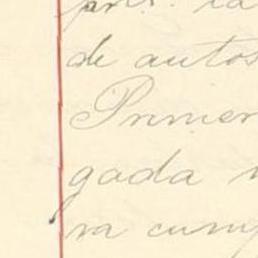 de autos
Primer
gada
ra cump